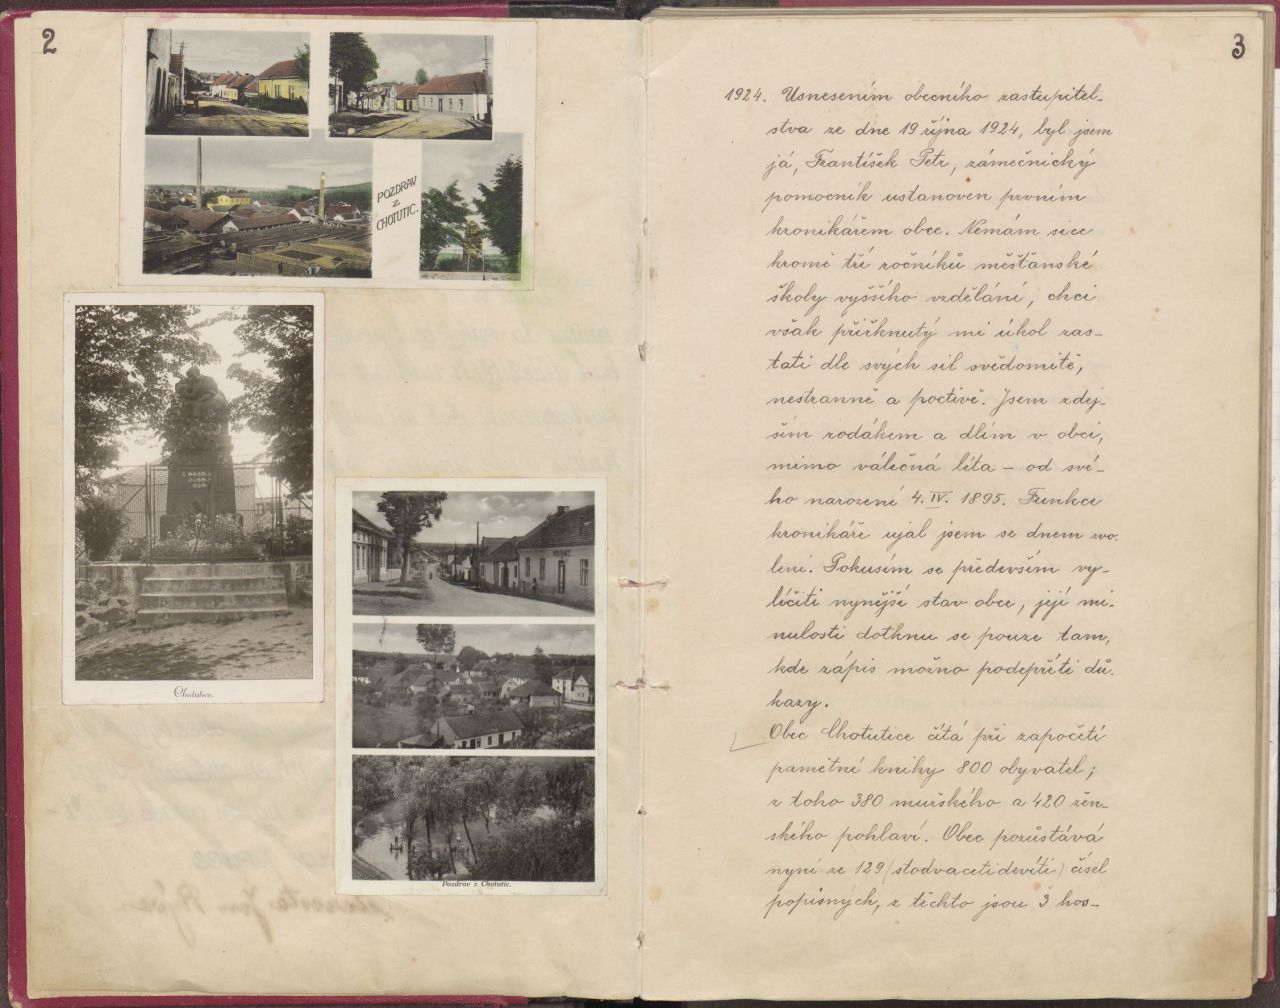 2
POZDRAV
Z
CHOTUTIC.
Chotutice.
Pozdrav z Chotutic.
3
1924. Usnesením obecního zastupitel-
stva ze dne 19 října 1924, byl jsem
já, František Petr, zámečnický
pomocník ustanoven prvním
kronikářem obce. Nemám sice
kromě tří ročníků měšťanské
školy vyššího vzdělání, chci
však přiřknutý mi úkol zas-
tati dle svých sil svědomitě,
nestranně a poctivě. Jsem zdej-
ším rodákem a dlím v obci,
mimo válečná léta – od své-
ho narození 4. IV. 1895. Funkce
kronikáře ujal jsem se dnem zvo-
lení. Pokusím se především vy-
líčiti nynější stav obce, její mi-
nulosti dotknu se pouze tam,
kde zápis možno podepříti dů-
kazy.
Obec Chotutice čítá při započetí
pamětní knihy 800 obyvatel;
z toho 380 mužského a 420 žen-
ského pohlaví. Obec pozůstává
nyní ze 129 (stodvacetidevíti) čísel
popisných, z těchto jsou 3 hos-